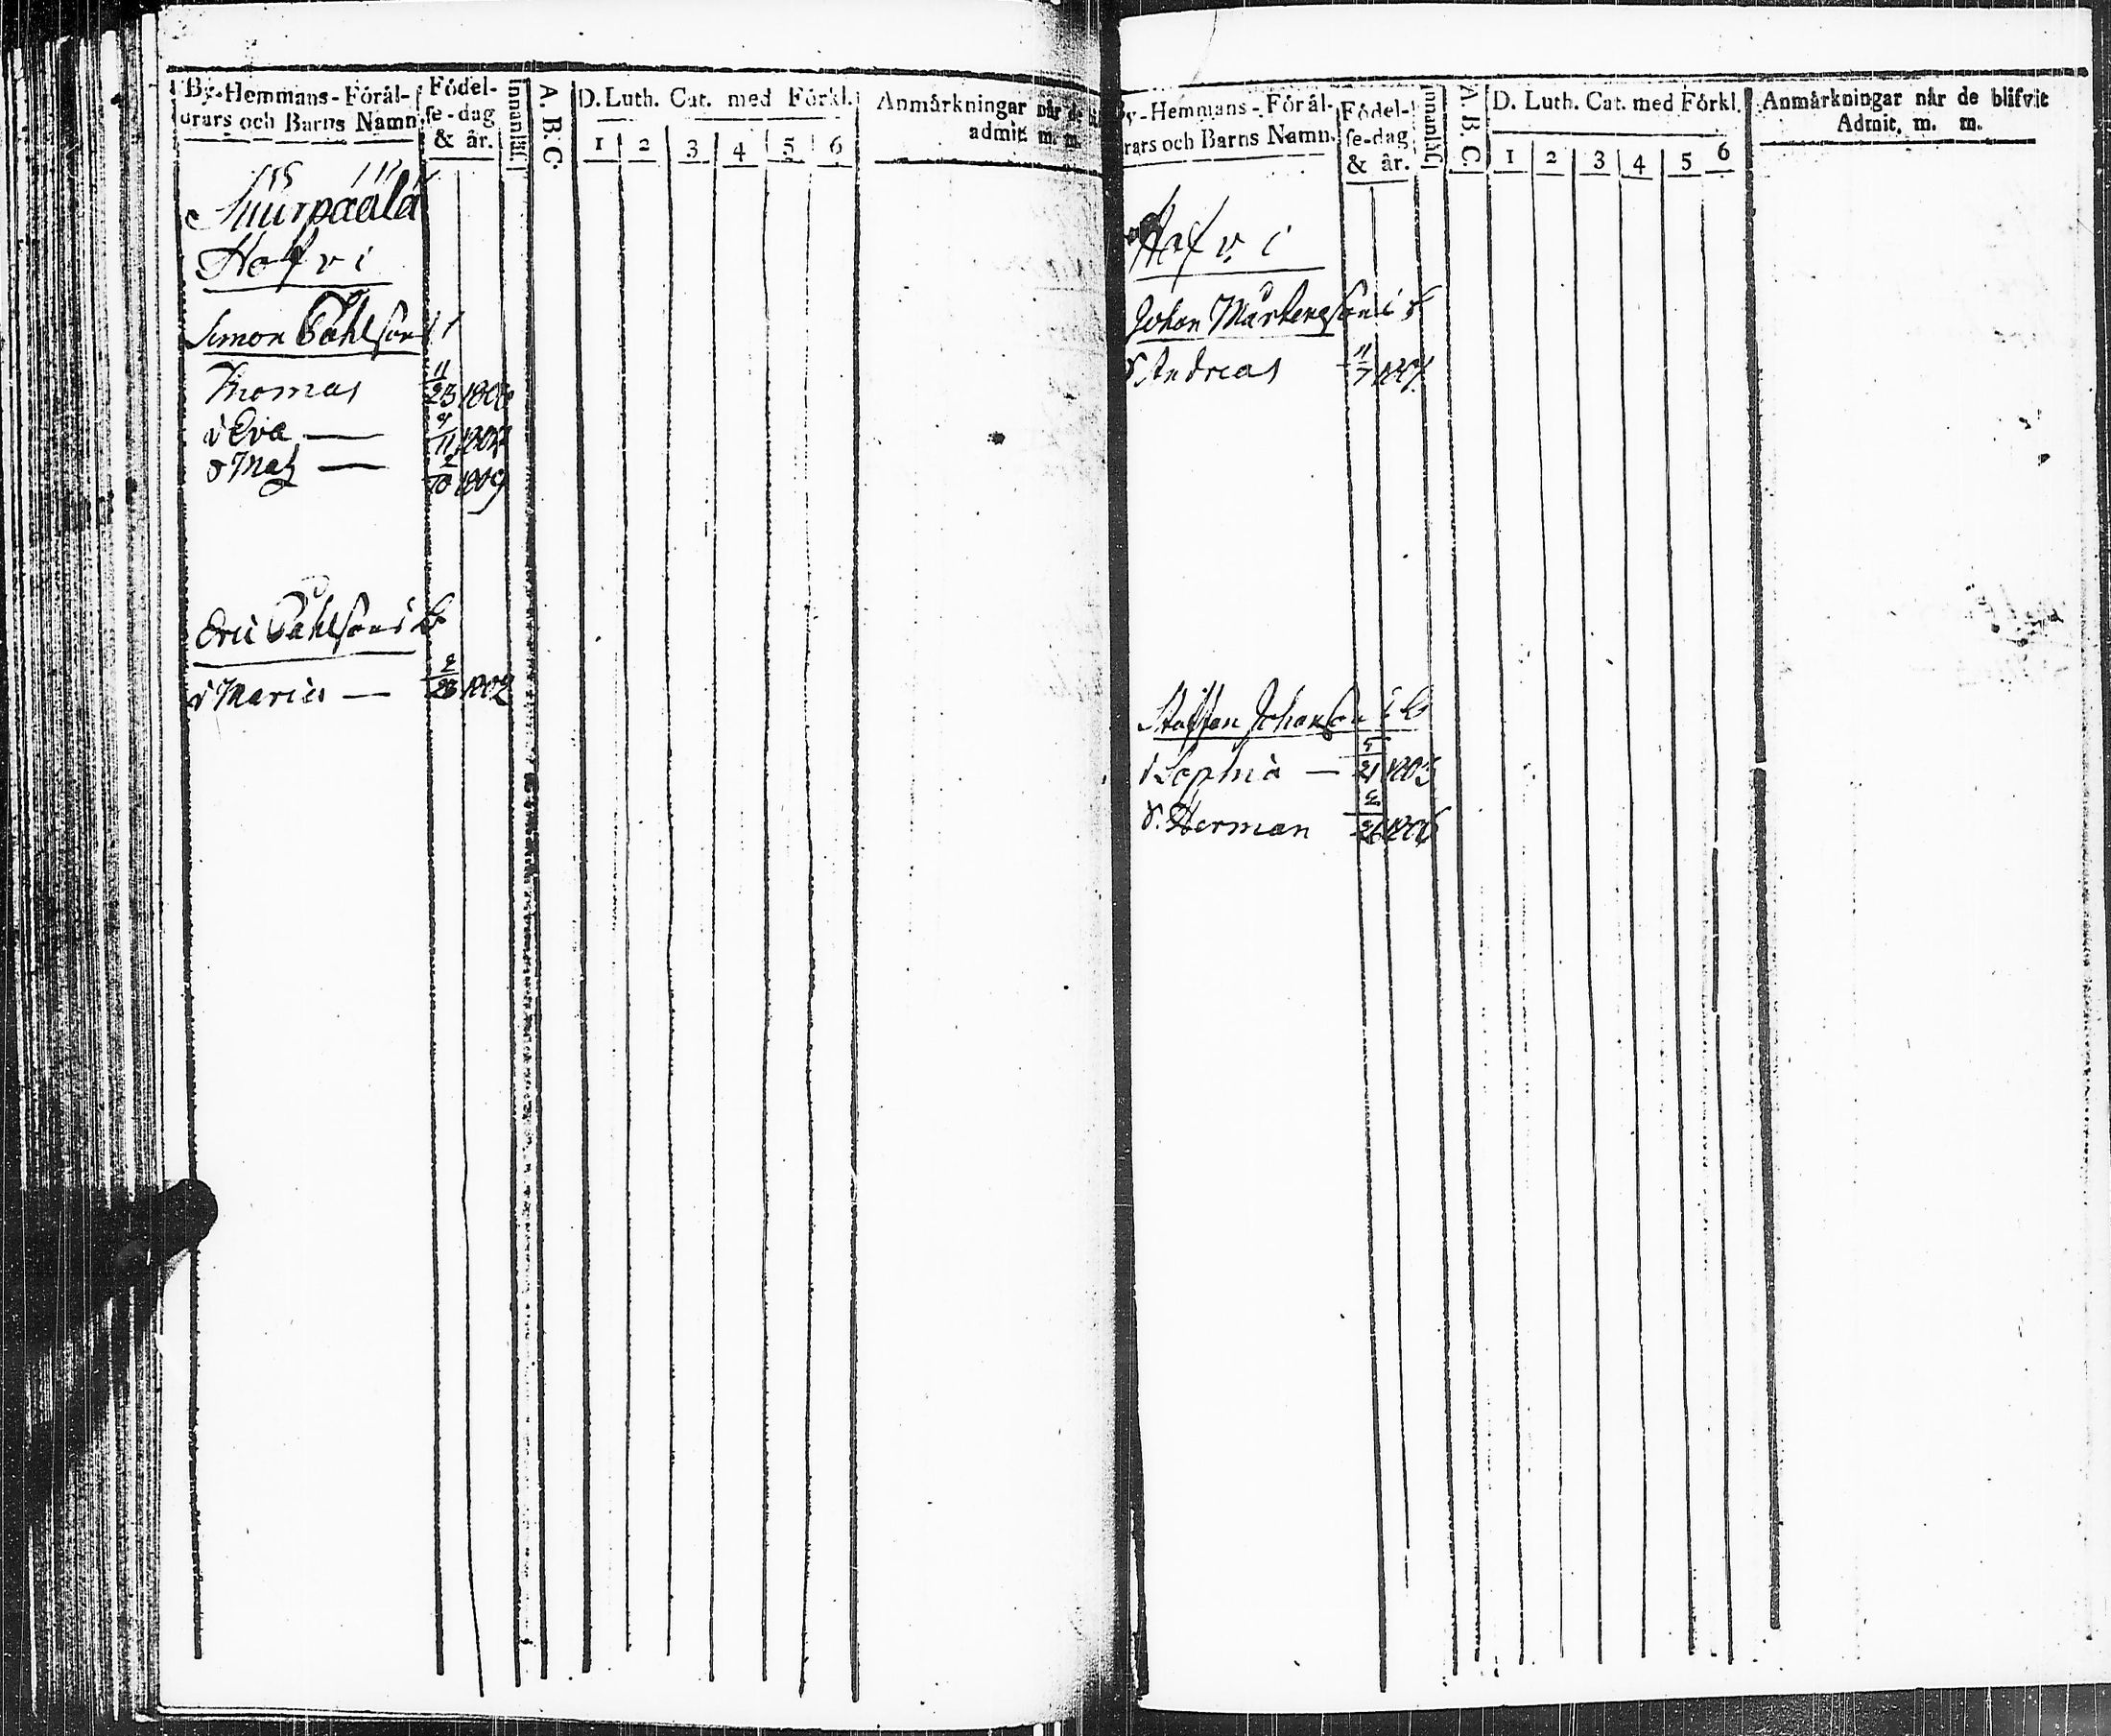 By-Hemmans-Förål-
drars och Barns Namn.
Födel-
se-dag
& år.
Innanläf.
A. B. C.
D. Luth. Cat. med Förkl.
1 2 3 4 5 6
Anmårkningar når de
admit. m. m.
Suurpäälä
Hofvi
Simon Påhlson
Thomas 11/23 180
d Eva — 9/11 1807
s Mats — 2/10 1809
Eric Påhlsons b
d Maria — 2/23 1802
By-Hemmans-Förål-
drars och Barns Namn.
Födel-
se-dag
& år.
Innanläf.
A. B. C.
D. Luth. Cat. med Förkl.
1 2 3 4 5 6
Anmårkningar når de blifvit
Admit. m. m.
Hofvi
Johan Mårtensons b
S. Andreas 11/7
Staffan Johanson b
d Sophia — 5/21 1803
S. Herman 1806